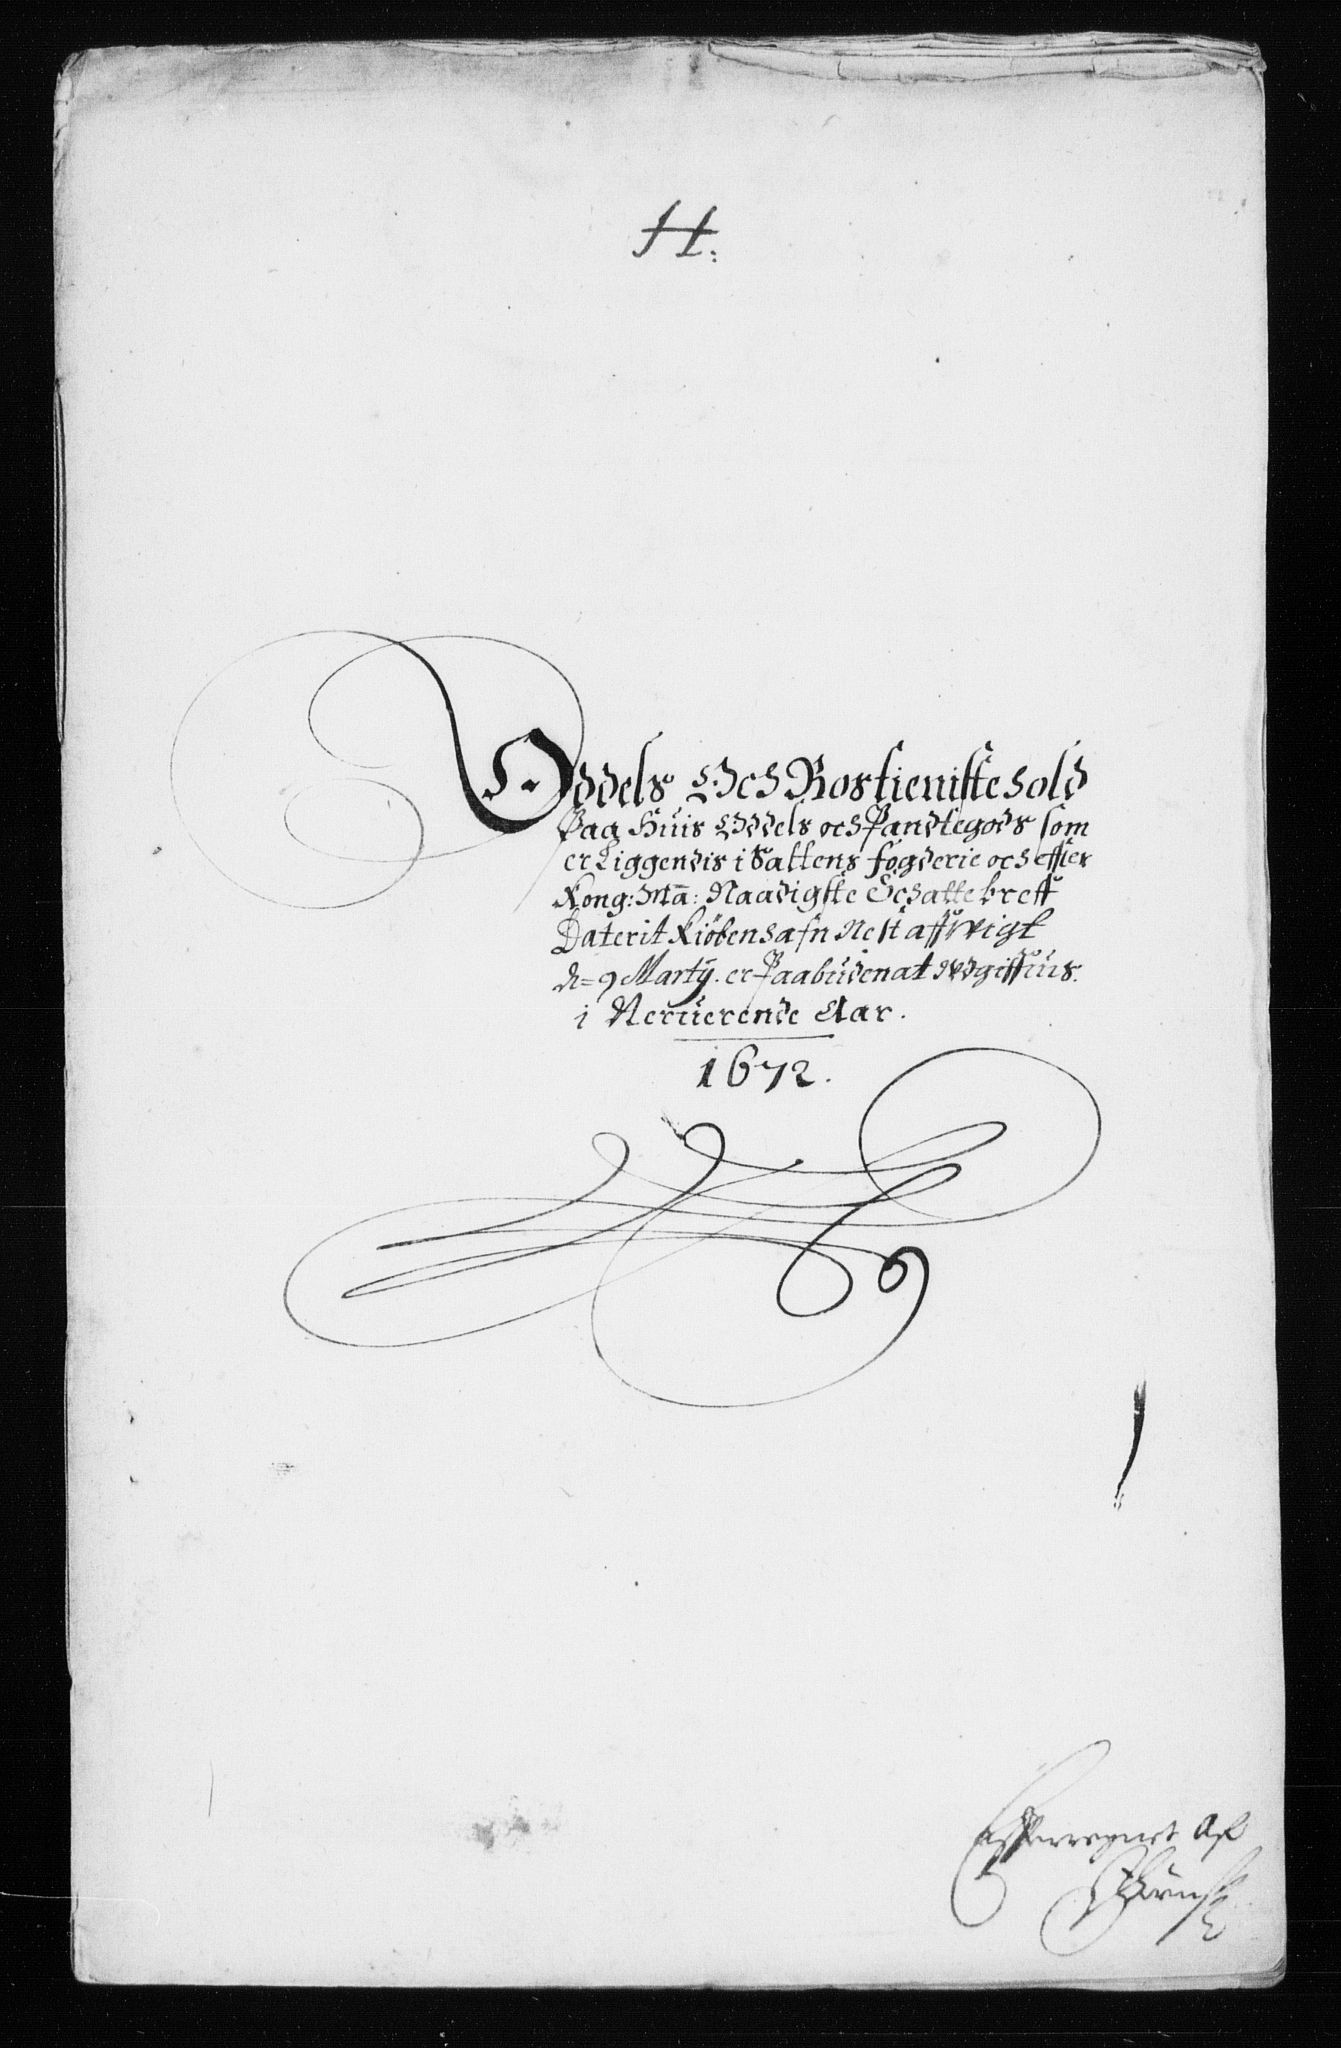 H:
Oddels Och Rostienistehold
Paa Huis Oddels och Pandtegods som
er Liggendis i Saltens fogderie och effter
Kong: Mā: Naadigste Schatte breff
Daterit Kiöbenhafn Nest affvigt
d= 9 Martÿ. er Paabudenat Udgiffuis.
i Neruerende Aar.
1672.
Efterregnet Af